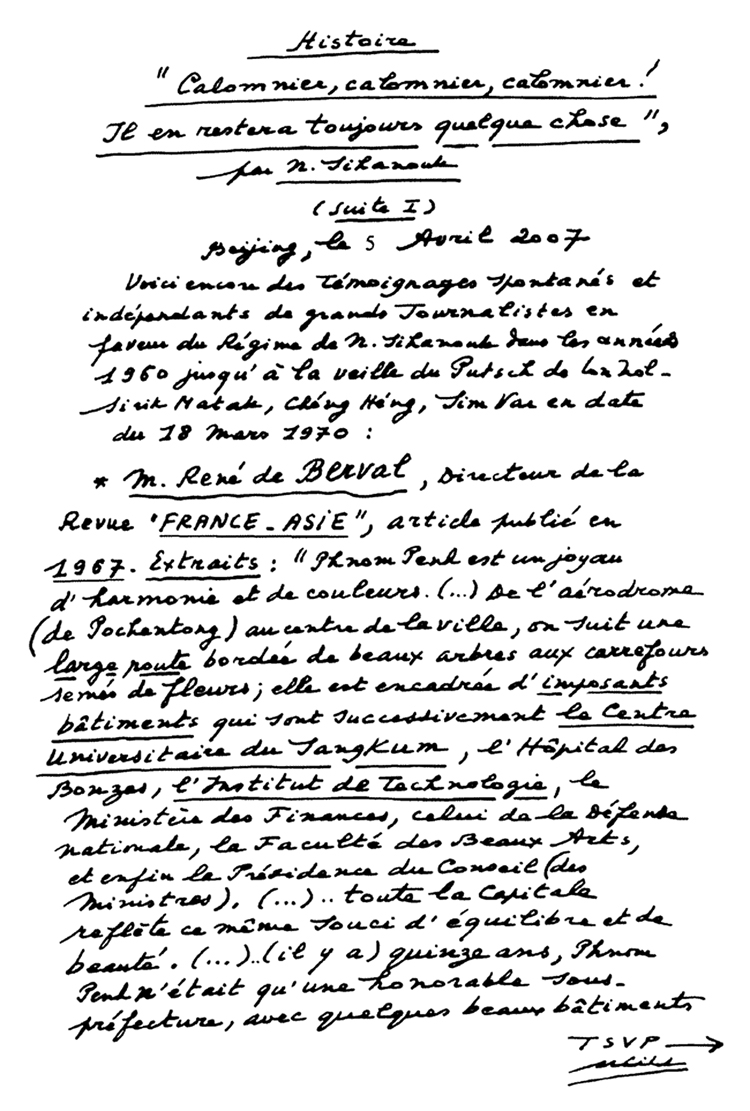 Histoire
"Calomnier, calomnier, calomnier !
Il en restera toujours quelque chose",
par N. Sihanouk
(Suite I)
Beijing, le 5 Avril 2007
Voici encore des Témoignages spontanés et
indépendants de grands Journalistes en
faveur du Régime de N. Sihanouk dans les années
1960 jusqu'à la veille du Putsch de Lon Nol-
Sirik Matak, Chéng Héng, Sim Var en date
du 18 Mars 1970 :
* M. René de Berval, Directeur de la
Revue "FRANCE-ASIE", article publié en
1967. Extraits : "Phnom Penh est un joyau
d'harmonie et de couleurs. (...) De l'aérodrome
(de Pochentong) au centre de la ville, on suit une
large route bordée de beaux arbres aux carrefours
semés de fleurs ; elle est encadrée d'imposants
bâtiments qui sont successivement le Centre
Universitaire du Sangkum, l'Hôpital des
Bonzes, l'Institut de Technologie, le
Ministère des Finances, celui de la Défense
nationale, la Faculté des Beaux Arts,
et enfin la Présidence du Conseil (des
Ministres). (...) .. toute la Capitale
reflète ce même souci d'équilibre et de
beauté. (...) .. (il y a) quinze ans, Phnom
Penh n'était qu'une honorable sous-
préfecture, avec quelques beaux bâtiments
TSVP →